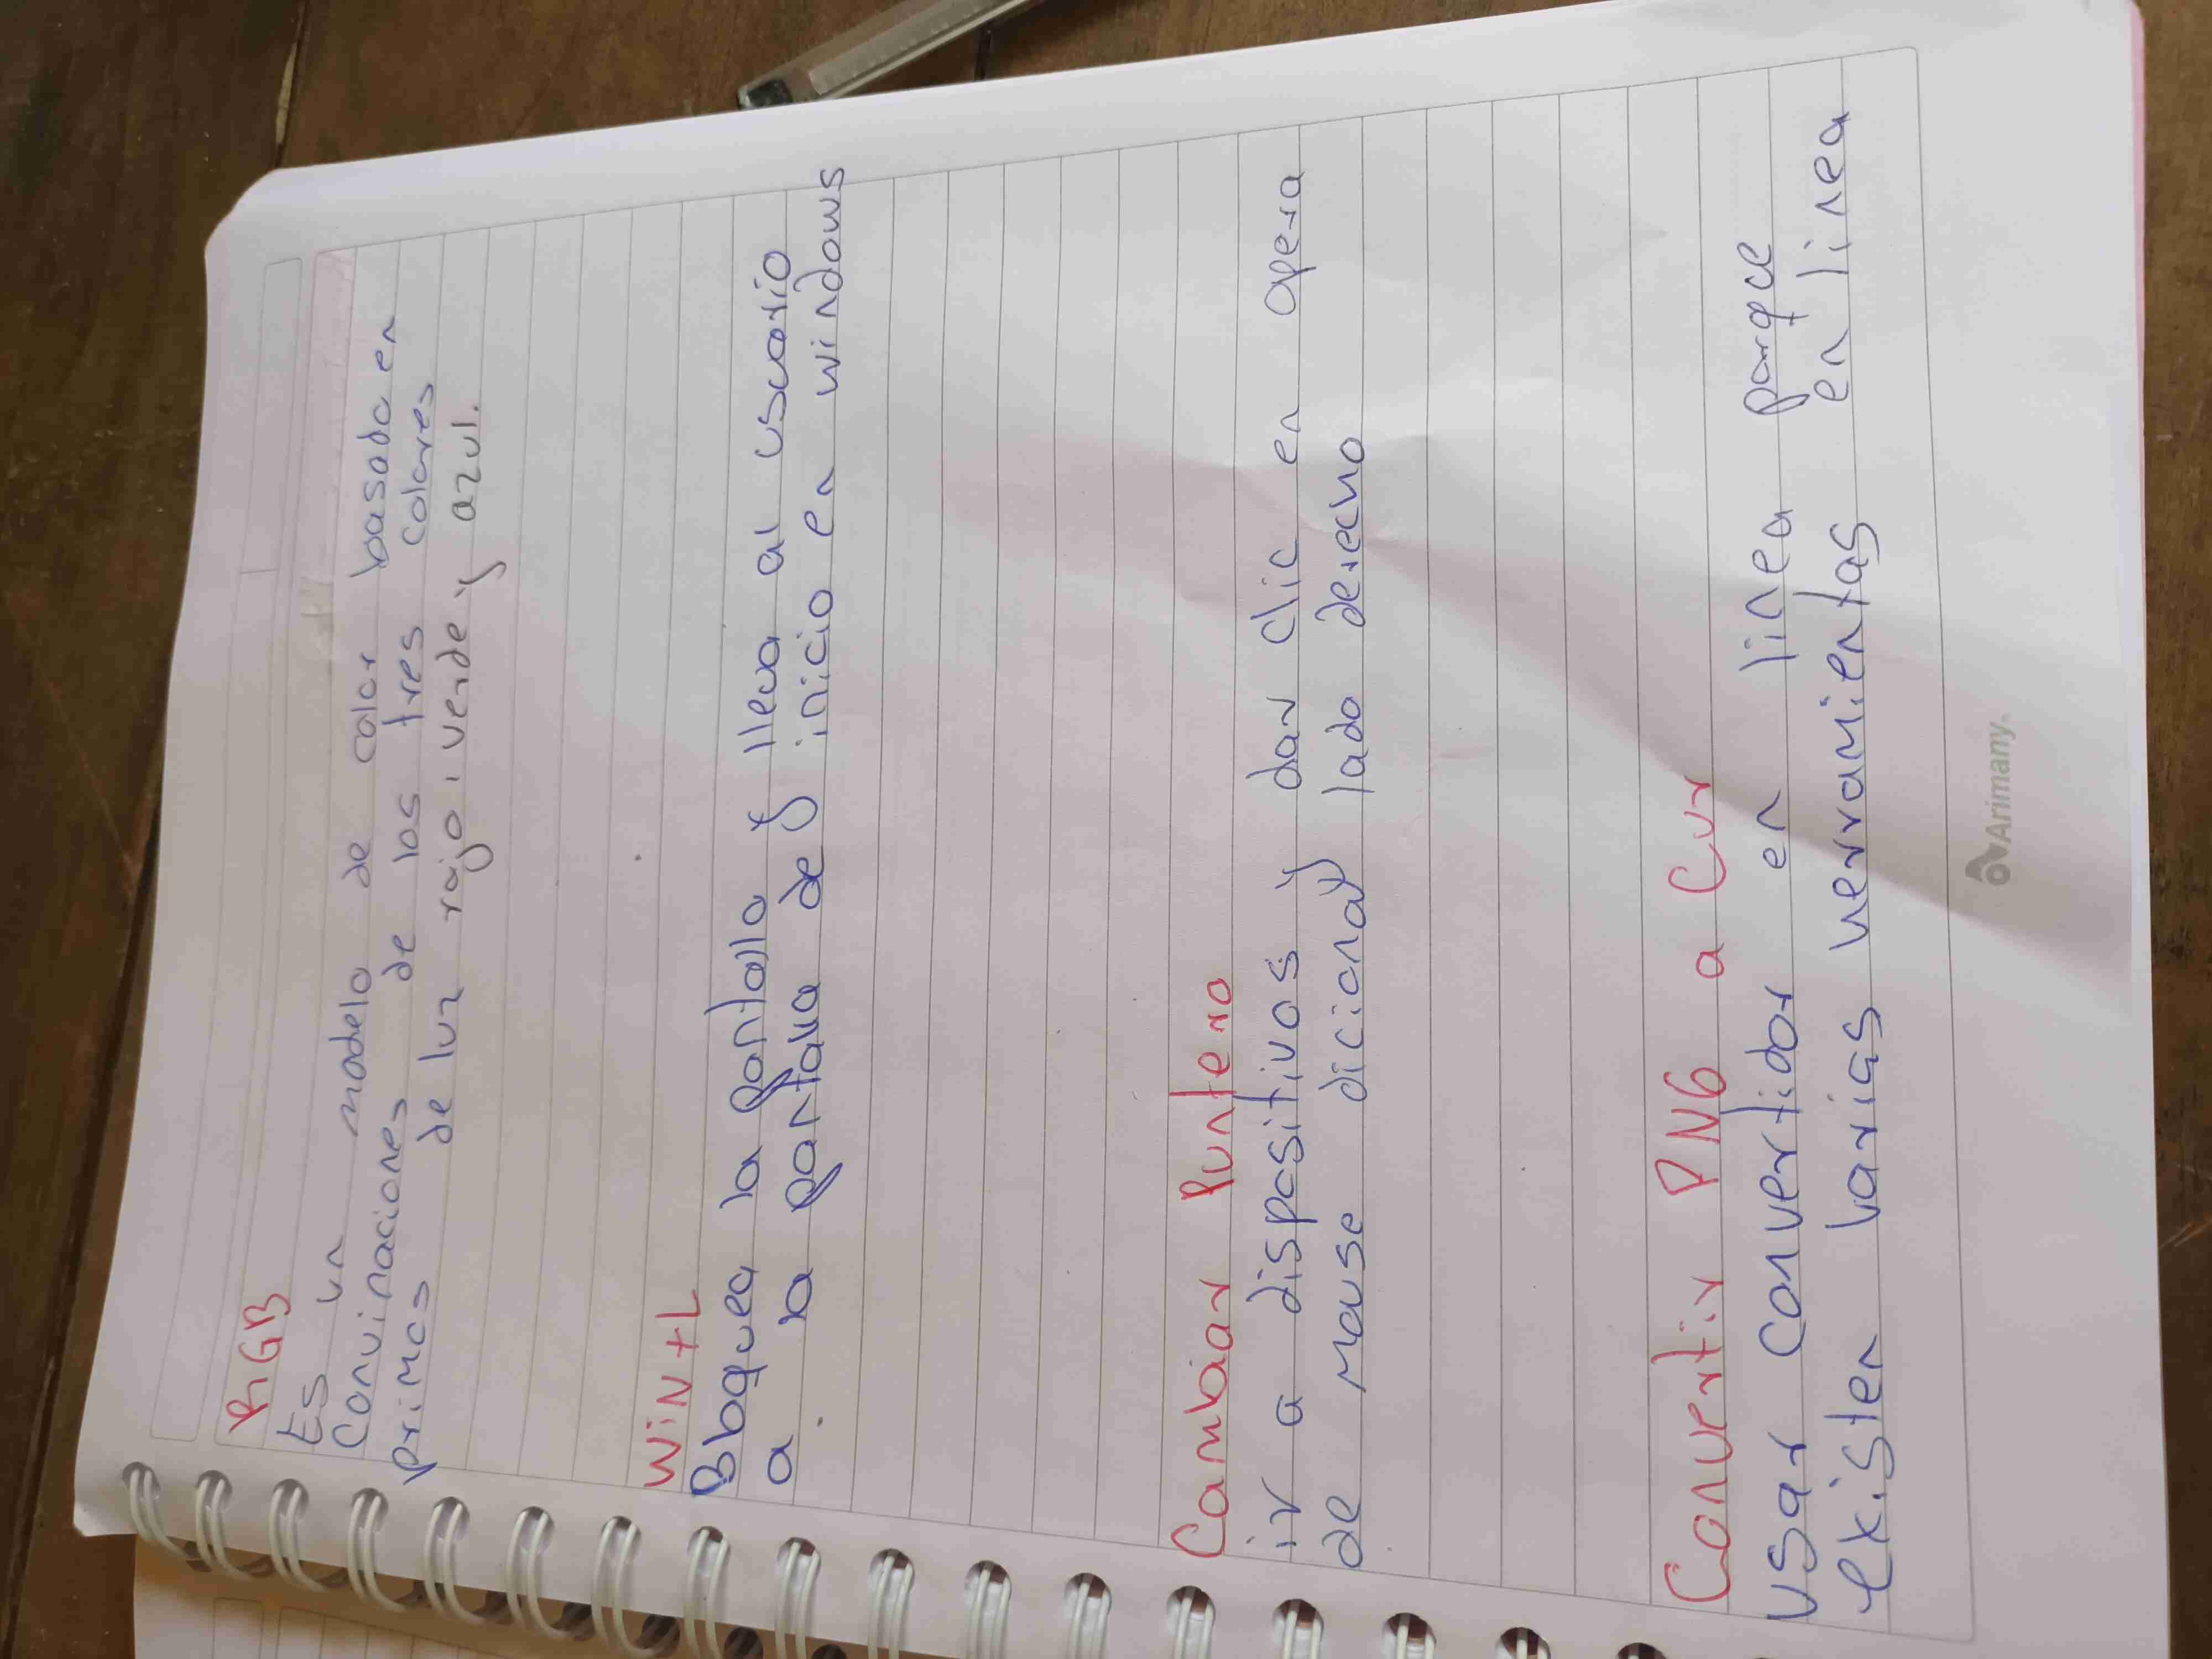 RGB
Es un modelo de color basada en
Convinaciones de los tres colores
primos de luz rojo, verde y azul.
WiN+L
Bloquea la pantalla y lleva al usuario
a la pantalla de inicio en windows
Cambiar Puntero
ir a dispositivos y dar clic en opera
de mouse dicional lado derecho
Convertir PNG a Cur
usar convertidor en linea porqce
existen varias herramientas en linea
Arimany